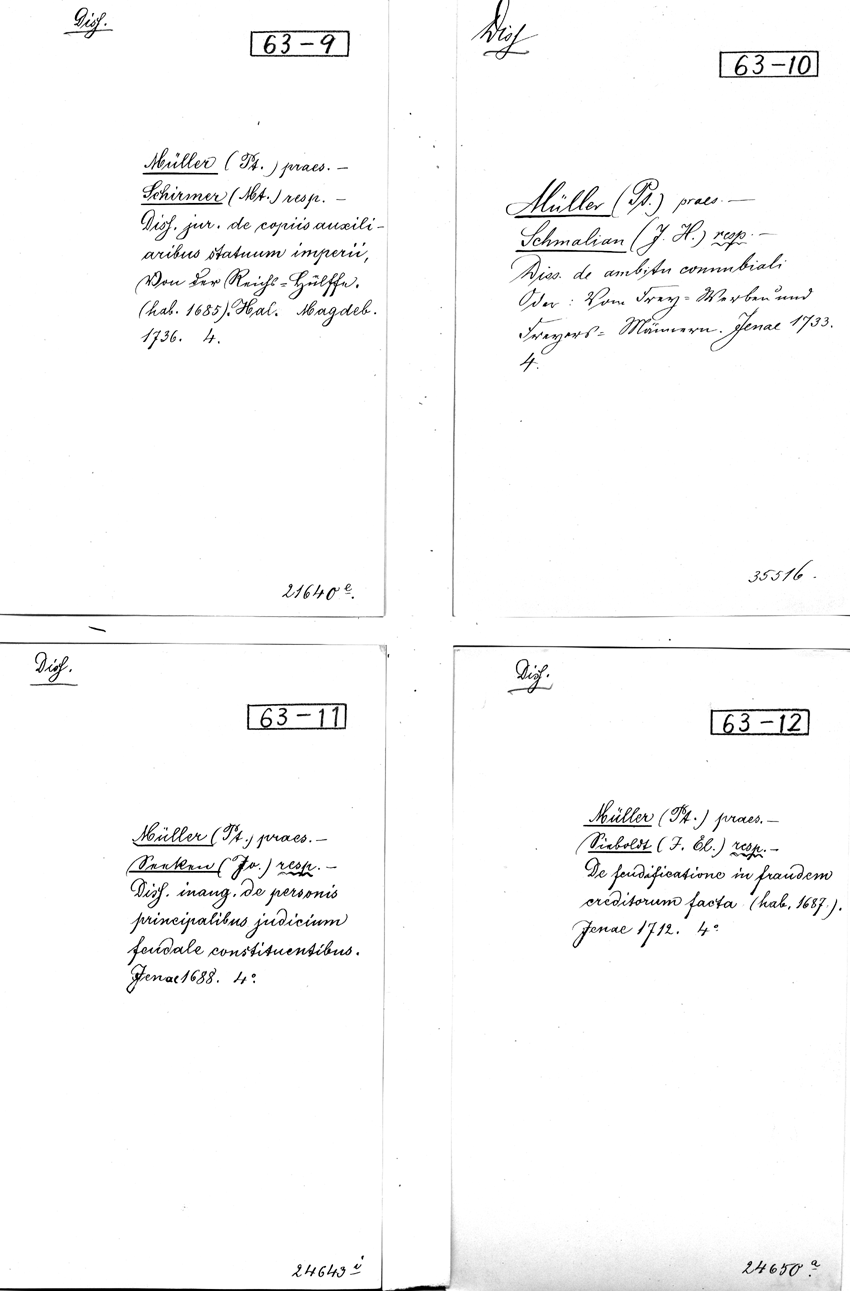 Diss.
63-9
Müller (Pt.) praes. —
Schirmer (Mt.) resp. —
Diss. jur. de copiis auxili-
aribus statuum imperii,
Von der Reichs=Hülffe.
(hab. 1685). Hal. Magdeb.
1736. 4.
21640 e.
Diss
63-10
Müller (Pt.) praes. —
Schmalian (J. H.) resp. —
Diss. de ambitu connubiali
Oder: Vom Frey=Werben und
Freyers=Männern. Jenae 1733.
4.
35516.
Diss.
63-11
Müller (Pt.) praes. —
Seeken (Jo.) resp. —
Diss. inaug. de personis
principalibus judicium
feudale constituentibus.
Jenae 1688. 4°
24643 i
Diss.
63-12
Müller (Pt.) praes. —
Sieboldt (J. El.) resp. —
De feudificatione in fraudem
creditorum facta (hab. 1687.).
Jenae 1712. 4°
24650 a.